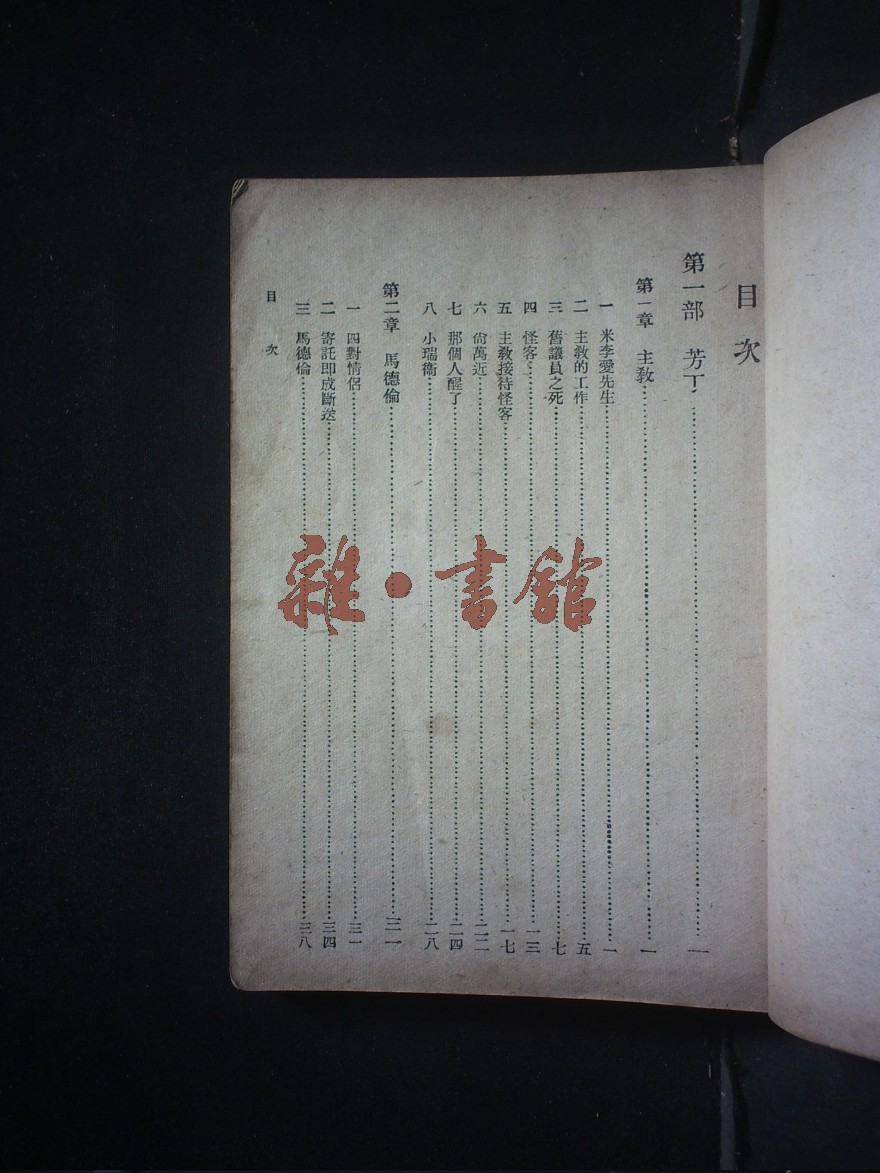 目次
第一部 芳丁………一
第一章 主教………一
一 米李愛先生………一
二 主教的工作………五
三 舊議員之死………七
四 怪客………一三
五 主教接待怪客………一七
六 尙萬近………二二
七 那個人醒了………二四
八 小瑞衞………二八
第二章 馬德倫………三一
一 四對情侶………三一
二 寄託即成斷送………三四
三 馬德倫………三八
目次
雜·書館